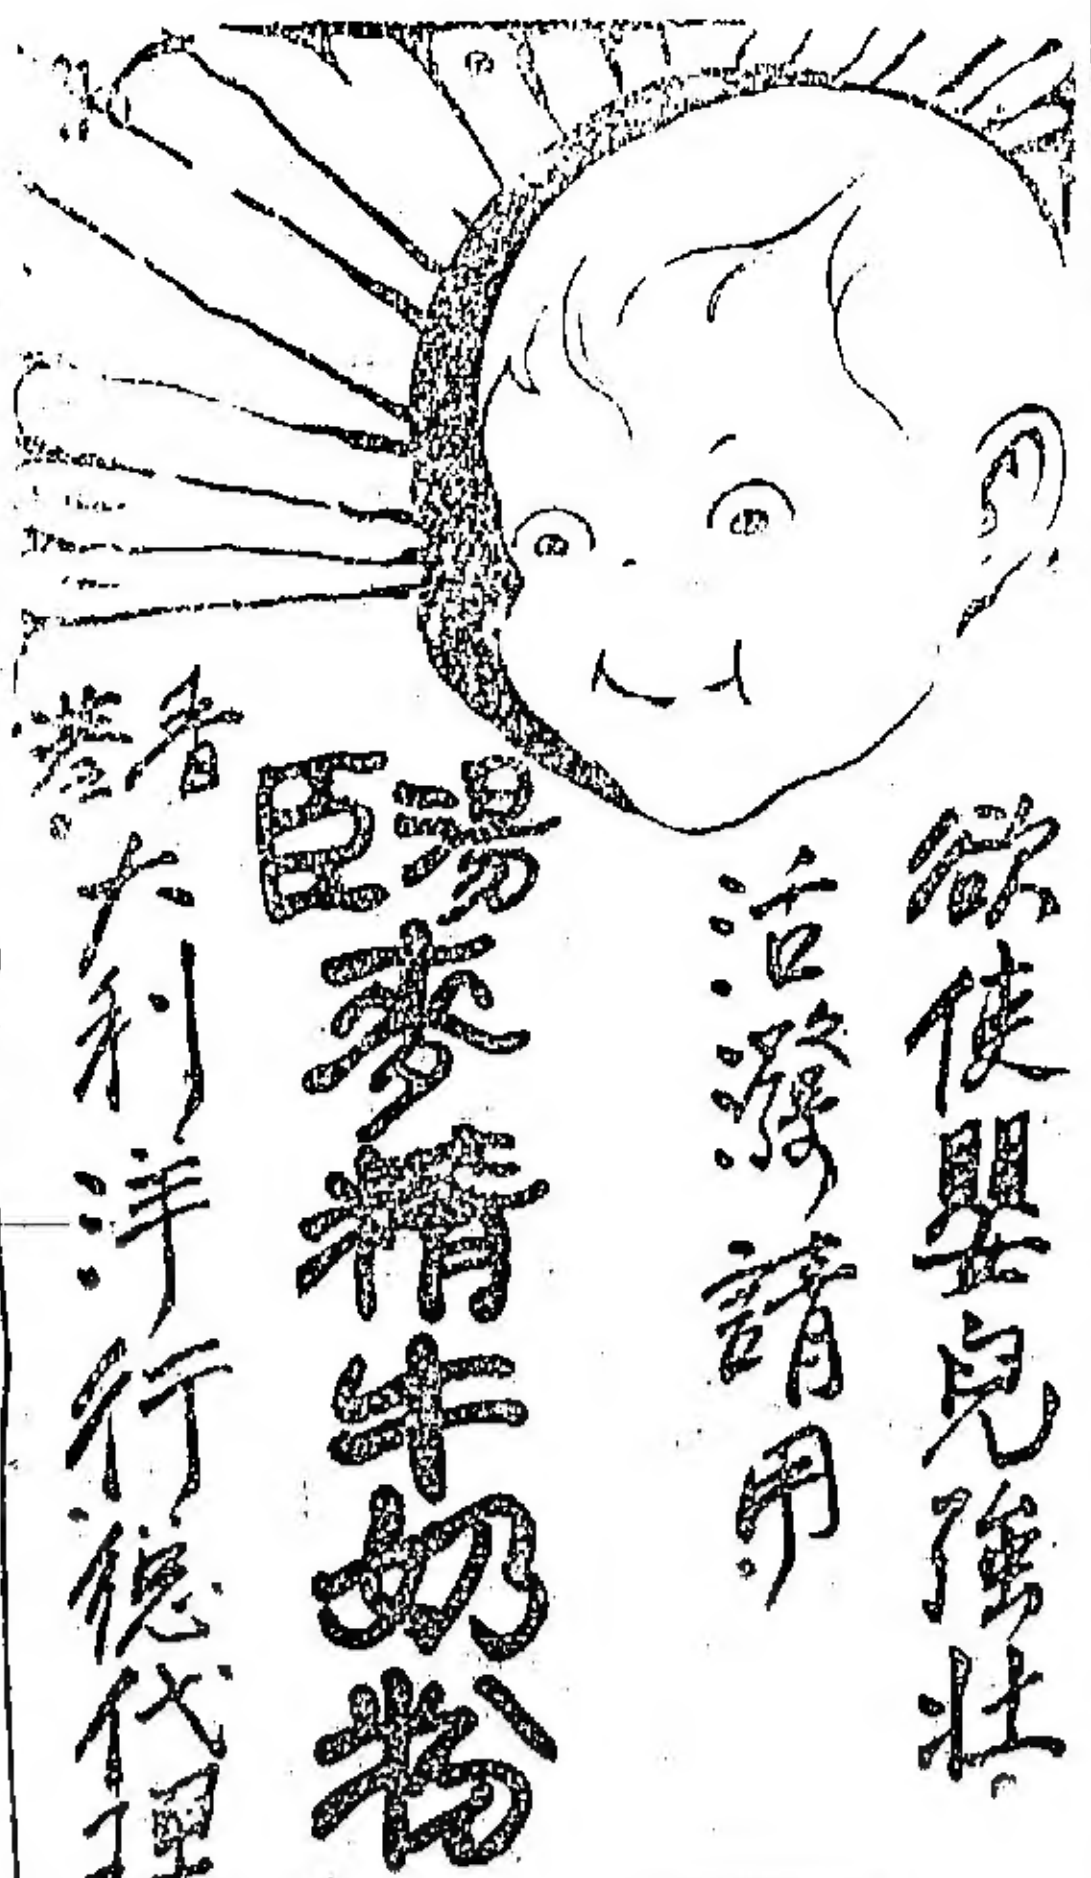 欲使嬰兒強壯。
活潑請用
湯臣麥精牛奶粉
香港大利洋行總代理